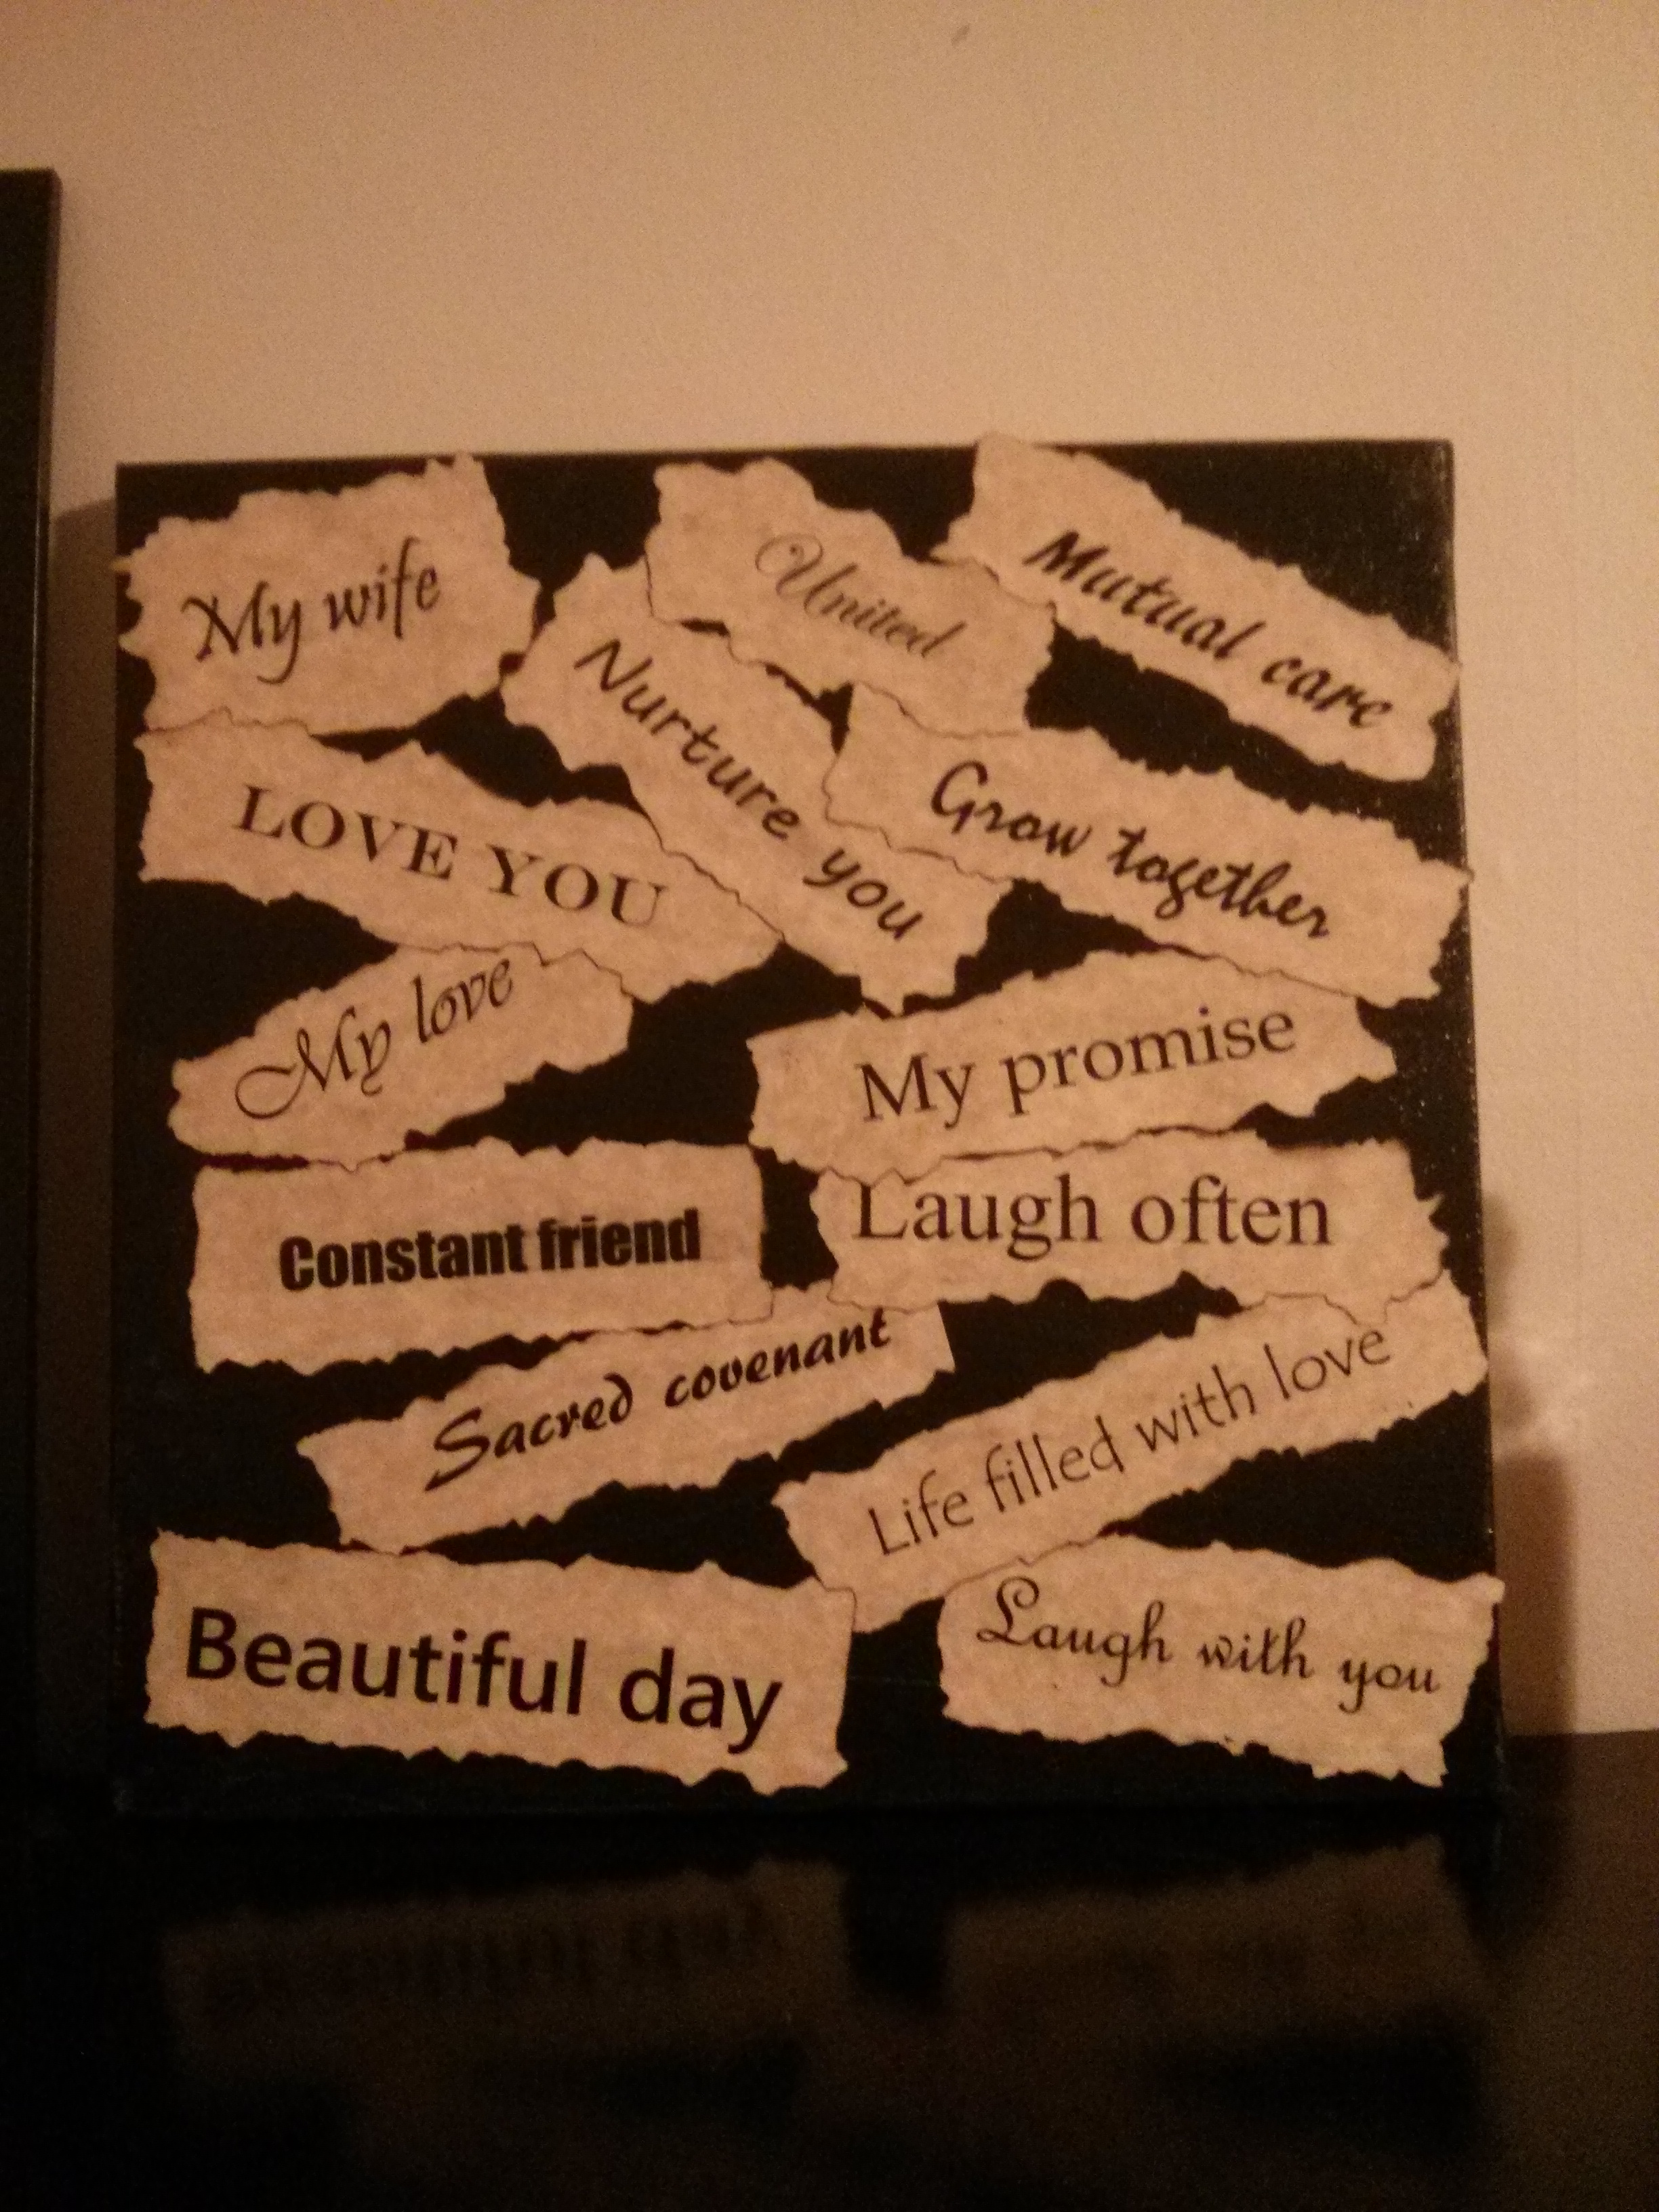 My wife
United
Mutual care
Nurture you
LOVE YOU
Grow together
My love
My promise
Constant friend
Laugh often
Sacred covenant
Life filled with love
Beautiful day
Laugh with you